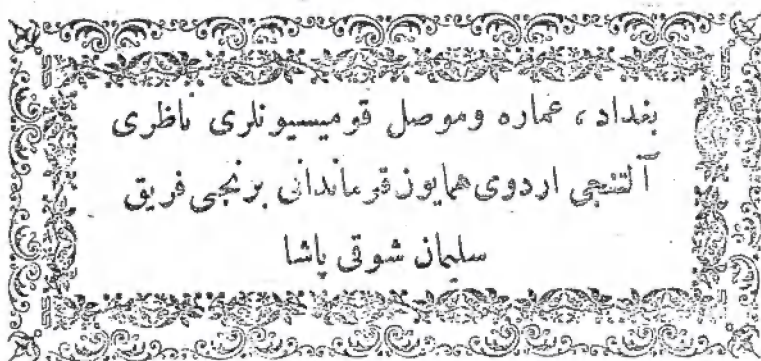 بغداد، عماره وموصل قوميسيونلرى ناظرى
آلتنجى اردوى همايون قرماندانى برنجى فريق
سليمان شوقى پاشا